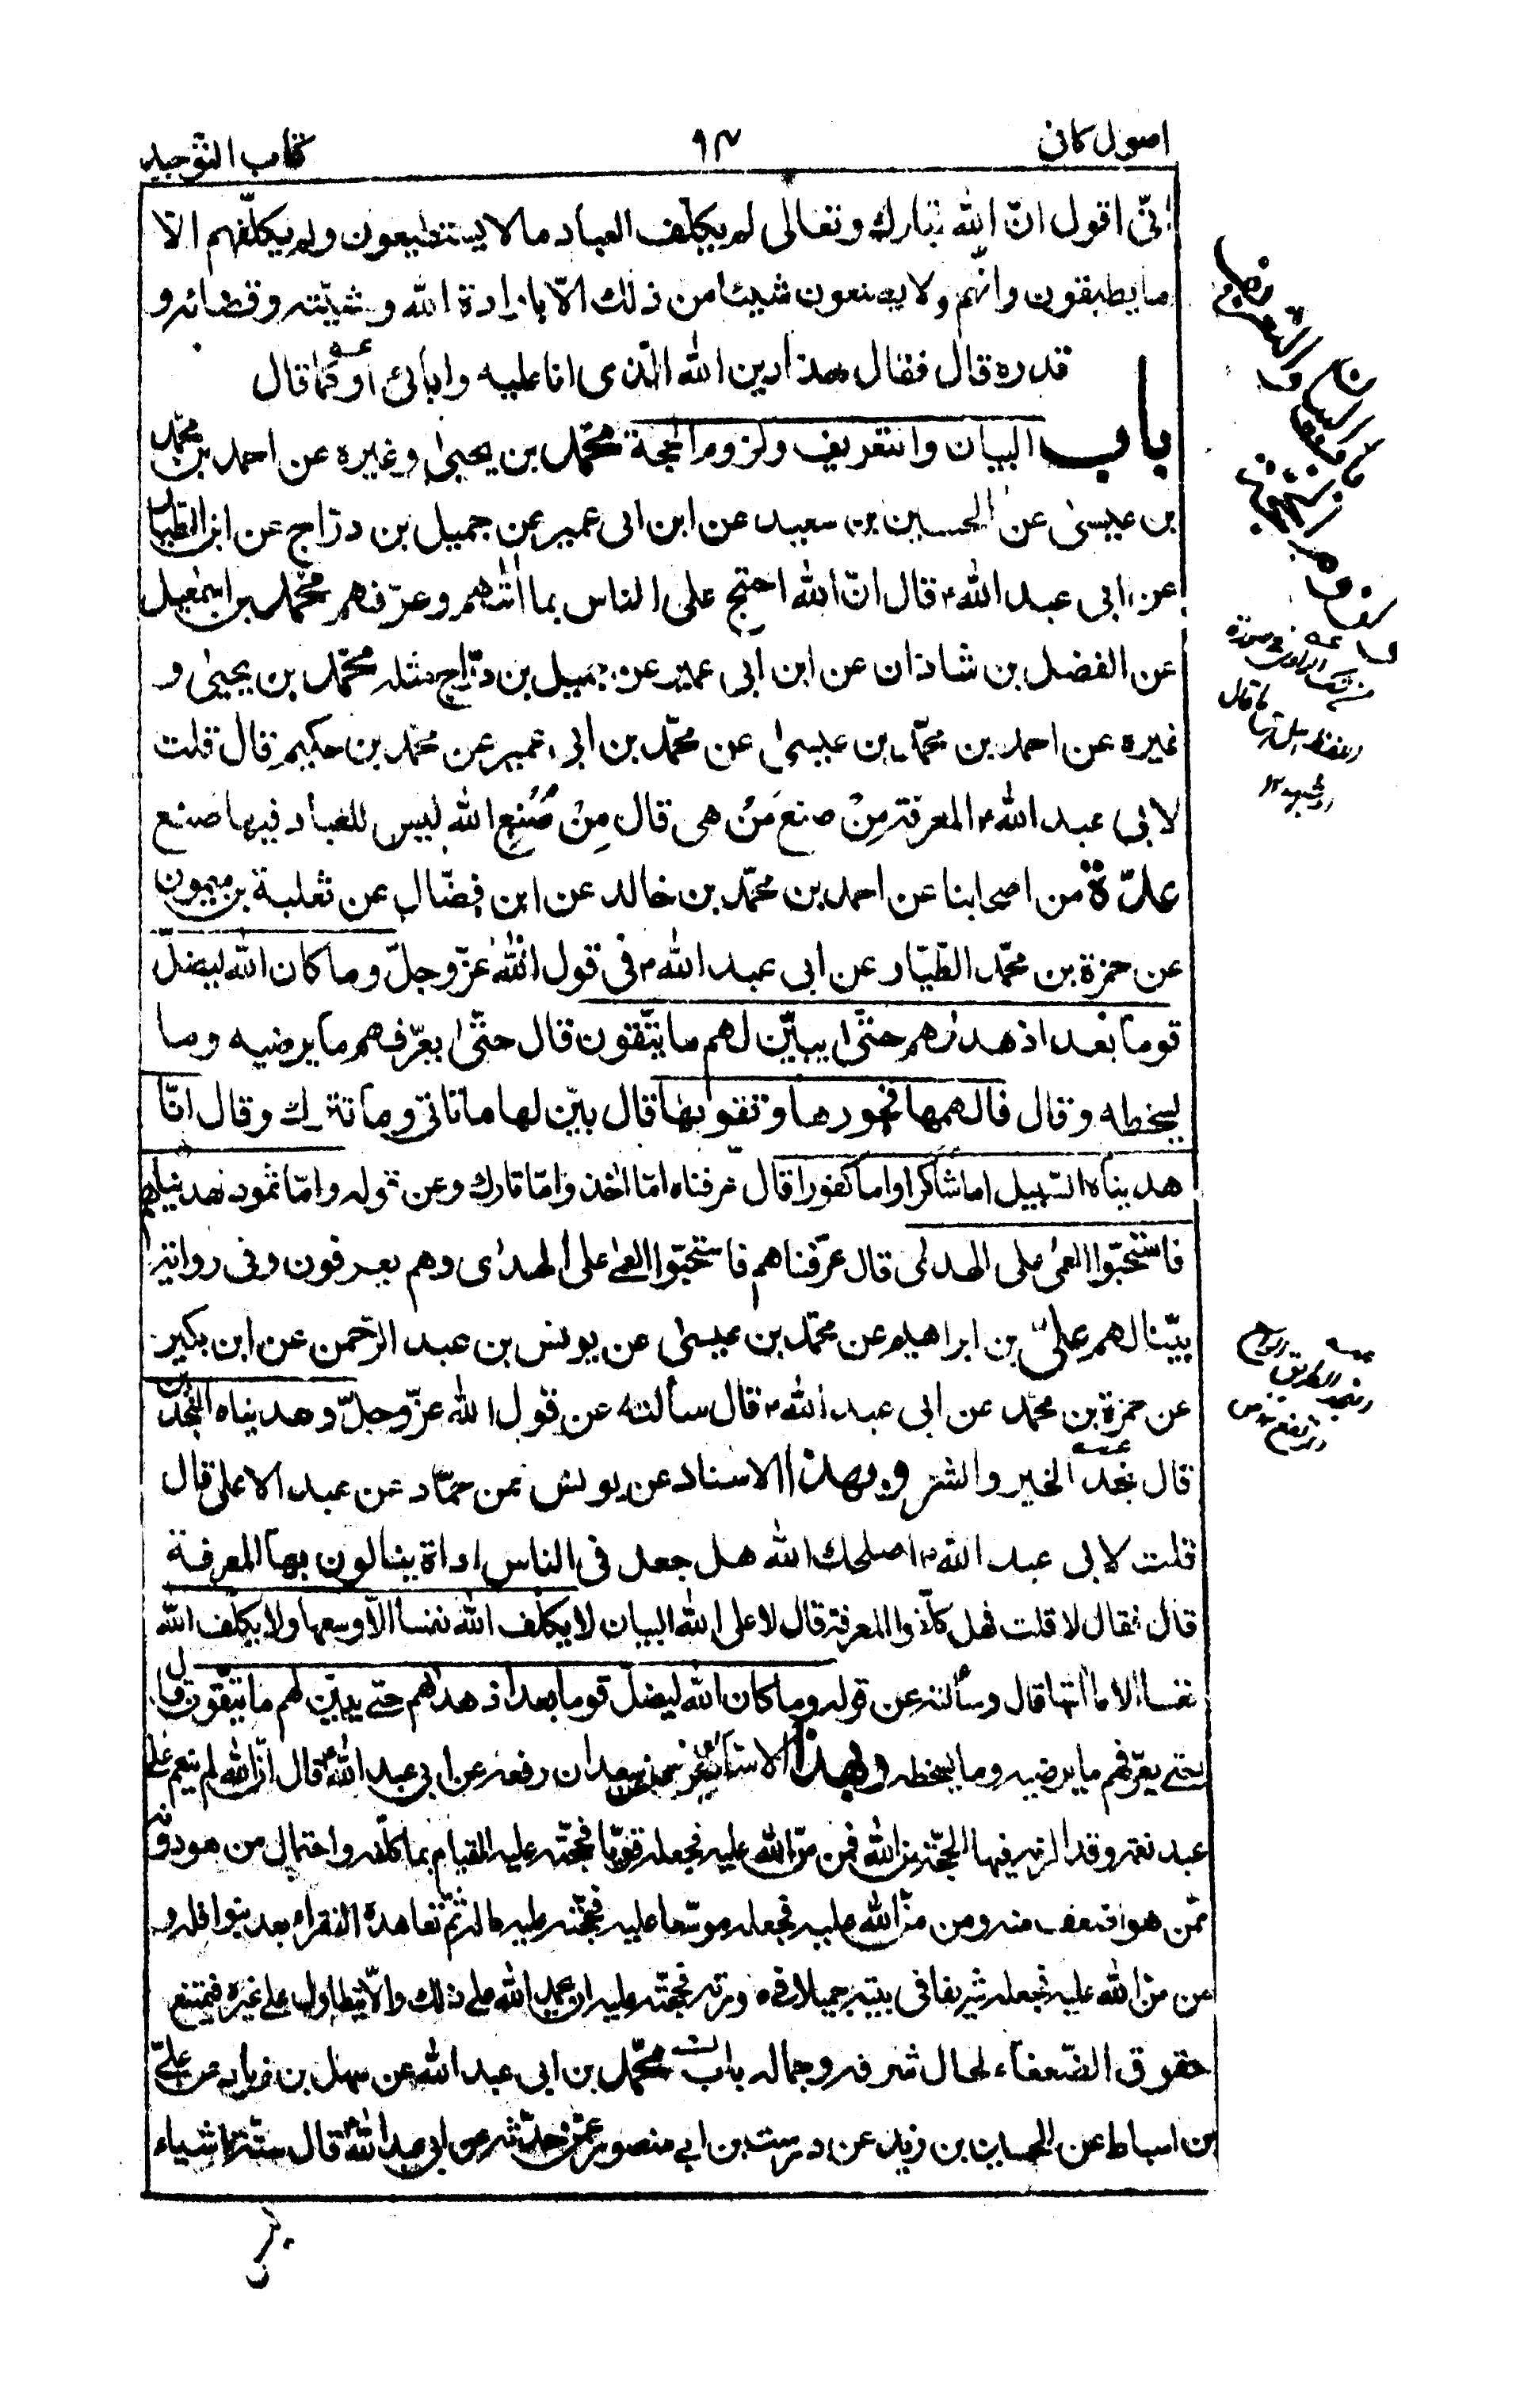 اصول کافی
٩٣
کتاب التوحید
انّی اقول انّ الله تبارك وتعالى لم يكلّف العباد ما لا يستطيعون ولم يكلّفهم الّا
ما يطيقون وانّهم ولا يصنعون شيئا من ذلك الّا بارادة الله و مشيّته و قضائه و
قدره قال فقال هذا دين الله الّذى انا عليه و ابائى او كما قال
باب البيان والتعريف ولزوم الحجة محمّد بن يحيىٰ وغيره عن احمد بن محمّد
بن عيسىٰ عن الحسين بن سعيد عن ابن ابى عمير عن جميل بن درّاج عن ابن الطيار
عن ابى عبد الله ع قال انّ الله احتج على الناس بما اٰتٰهم وعرّفهم محمّد بن اسمٰعيل
عن الفضل بن شاذان عن ابن ابى عمير عن جميل بن درّاج مثله محمّد بن يحيىٰ و
غيره عن احمد بن محمّد بن عيسىٰ عن محمّد بن ابى عمير عن محمّد بن حكيم قال قلت
لابى عبد الله ع المعرفة مِنْ صنع مَنْ هى قال مِنْ صُنْعِ الله ليس للعباد فيها صنع
علدّة من اصحابنا عن احمد بن محمّد بن خالد عن ابن فضّال عن ثعلبة بن ميمون
عن حمزة بن محمّد الطيّار عن ابى عبد الله ع فى قول الله عزّ وجلّ وما كان الله ليضلّ
قوما بعد اذ هدٰىهم حتّىٰ يبيّن لهم ما يتّقون قال حتّىٰ يعرّفهم ما يرضيه وما
يسخطه وقال فالهمها فجورها وتقوٰىها قال بيّن لها ما تاتى وما تترك وقال انّا
هديناه السّبيل امّا شاكرا وامّا كفورا قال عرّفناه امّا اٰخذ وامّا تارك وعن قوله وامّا ثمود فهديناهم
فاستحبّوا العمىٰ على الهدىٰ قال عرّفناهم فاستحبّوا العمىٰ على الهدٰى وهم يعرفون وفى رواية
بيّنا لهم علىّ بن ابراهيم عن محمّد بن عيسىٰ عن يونس بن عبد الرّحمن عن ابن بكير
عن حمزة بن محمّد عن ابى عبد الله ع قال سألته عن قول الله عزّ وجلّ وهديناه النجدين
قال نجد الخير والشر و بهذا الاسناد عن يونس عن حمّاد عن عبد الاعلى قال
قلت لابى عبد الله ع اصلحك الله هل جعل فى الناس اداة ينالون بها المعرفة
قال فقال لا قلت فهل كلّفوا المعرفة قال لا على الله البيان لا يكلّف الله نفسا الّا وسعها ولا يكلّف الله
نفسا الا ما اٰتٰها قال وسألته عن قوله وما كان الله ليضلّ قوما بعد اذ هدٰهم حتى يبيّن لهم ما يتّقون قال
حتى يعرّفهم ما يرضيه وما يسخطه وبهذا الاسناد عن يونس عن سعدان رفعه عن ابى عبد الله ع قال انّ الله لم ينعم على
عبد نعمة وقد الزمه فيها الحجّة من الله فمن منّ الله عليه فجعله قويّا فحجّته عليه القيام بما كلّفه واحتمال من هو دونه
ممّن هو اضعف منه ومن منّ الله عليه فجعله موسّعا عليه فحجّته عليه ماله ثمّ تعاهده الفقراء بعد بنوافله و
من منّ الله عليه فجعله شريفا فى بيته جميلا فى صورته فحجّته عليه ان يحمد الله على ذلك والّا يتطاول على غيره فيمنع
حقوق الضّعفاء لحال شرفه وجماله باب محمّد بن ابى عبد الله عن سهل بن زياد عن علىّ
بن اسباط عن الحسين بن زيد عن درست بن ابى منصور عمّن حدّثه عن ابى عبد الله ع قال ستّة اشياء